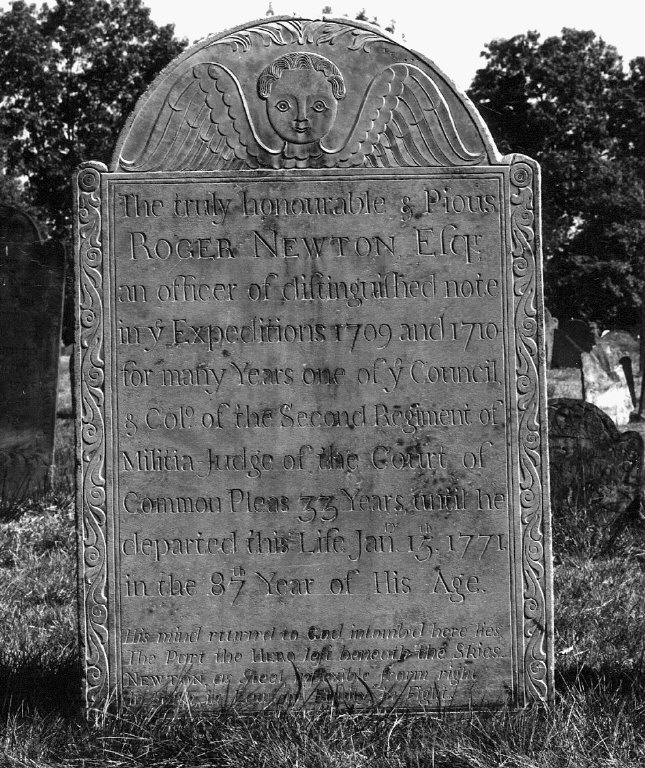 The truly honourable & Pious
ROGER NEWTON Eſqr.
an officer of diſtinguiſhed note
in yͤ Expeditions 1709 and 1710
for many Years one of yͤ Council,
& Colo. of the Second Regiment of
Militia Judge of the Court of
Common Pleas 33 Years, until he
departed this Life Janry 15th. 1771
in the 87th Year of His Age.
His mind returnd to God intombd here lies
The Part the HERO left beneath the SKIES
NEWTON as Steel, inflexible from right
in